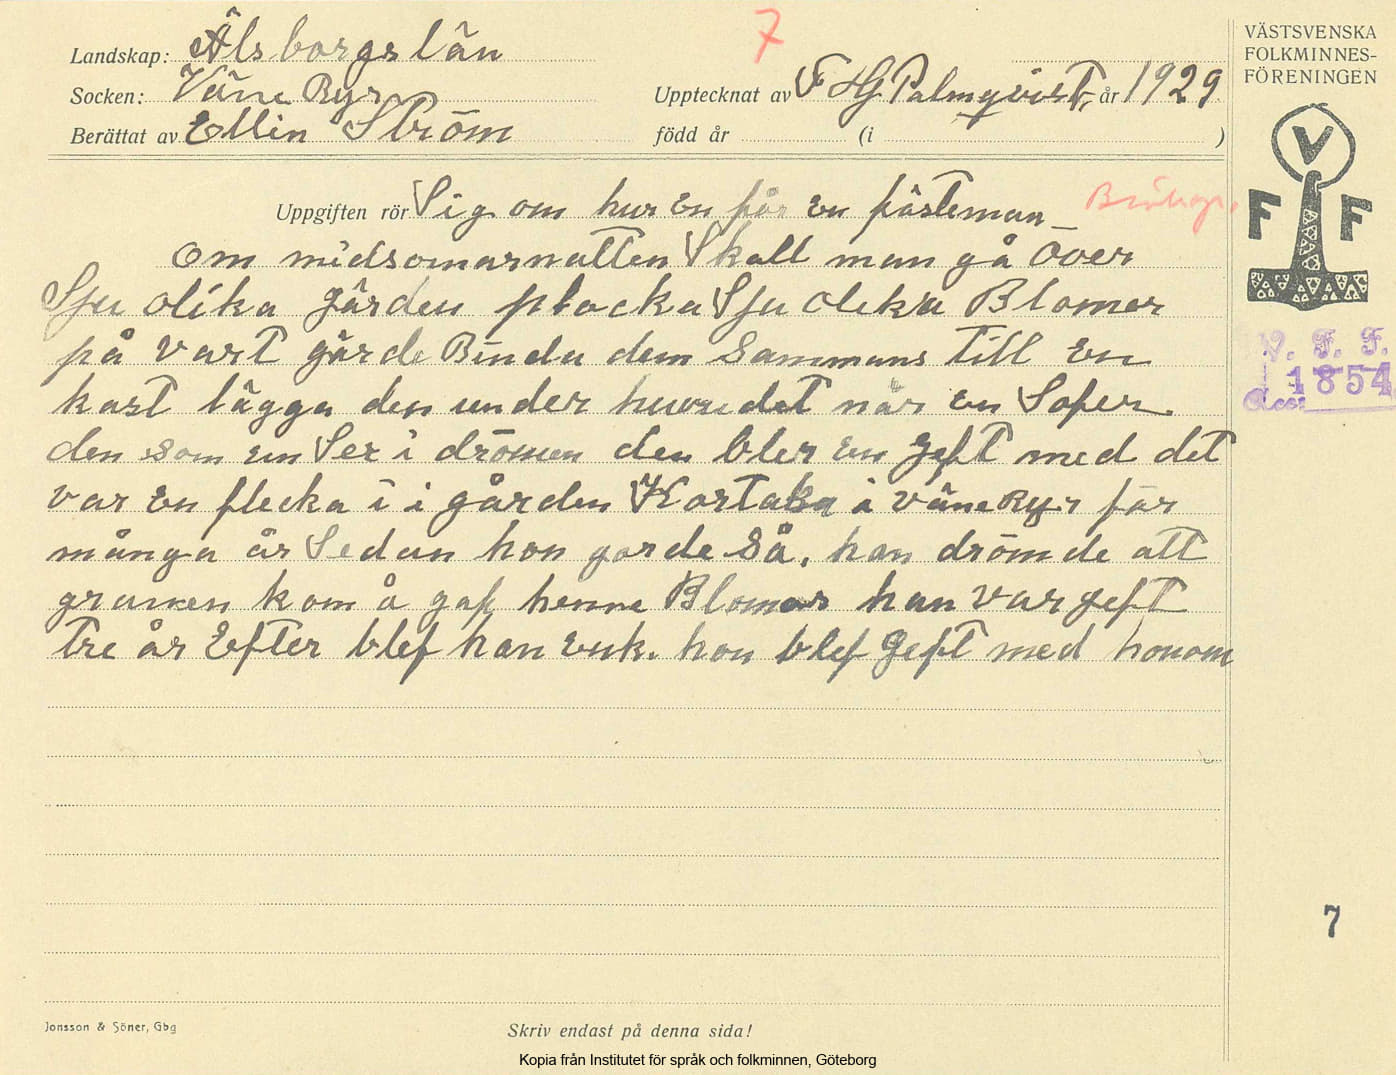 7
VÄSTSVENSKA
FOLKMINNES-
FÖRENINGEN
Landskap: Älsborgs län
Socken: Väne Ryr
Upptecknat av F Hj Palmqvist, år 1929
Berättat av Ellin Ström
född år (i )
Uppgiften rör Sig om hur en får en fästeman
om midsomarnatten Skall man gå över
Sju olika gärden plocka Sju olika Blomer
på vart gärde Binda dem sammans till en
kast lägga den under huvudet när en Sofer
den som en Ser i drömen den bler en geft med det
var en flecka i i gården Kortaka i väne Ryr får
många år Sedan hon gorde så, han drömde att
granen kom å gaf henne Blomer han var geft
tre år Efter blef han enk. hon blef geft med honom
V
F F
V. F. F.
1854
Acc:
7
Jonsson & Söner, Gbg
Skriv endast på denna sida!
Kopia från Institutet för språk och folkminnen, Göteborg